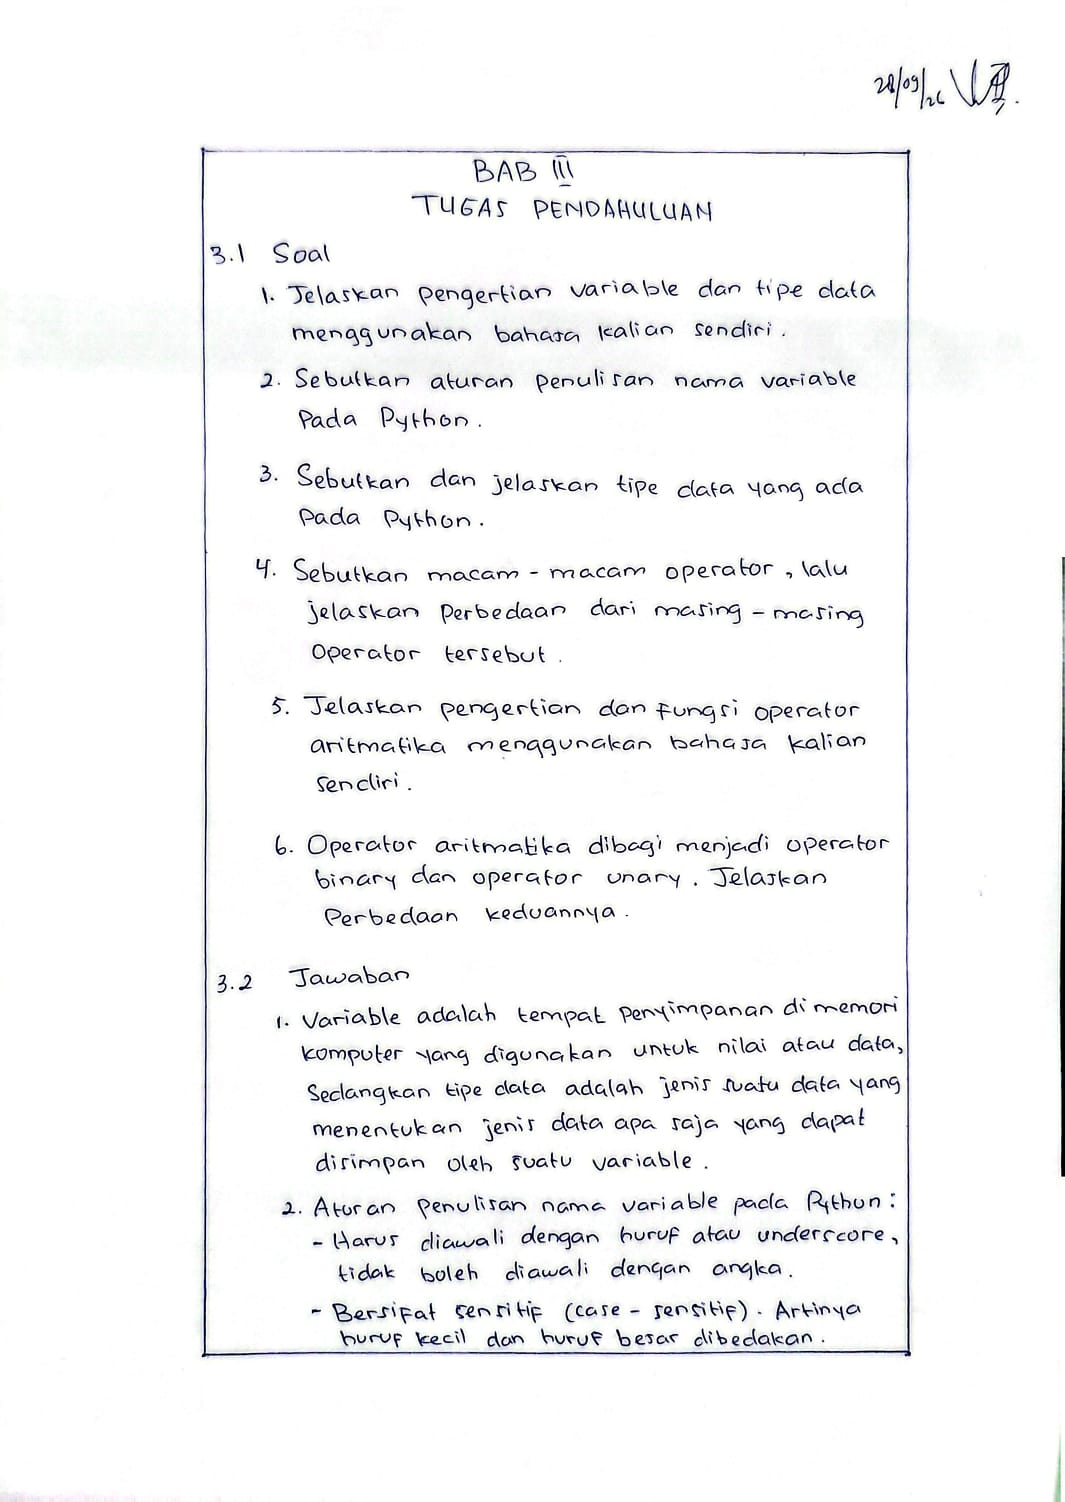 28/09/26
BAB III
TUGAS PENDAHULUAN
3.1 Soal
1. Jelaskan pengertian variable dan tipe data
menggunakan bahasa kalian sendiri.
2. Sebutkan aturan penulisan nama variable
Pada Python.
3. Sebutkan dan jelaskan tipe data yang ada
Pada Python.
4. Sebutkan macam - macam operator, lalu
jelaskan Perbedaan dari masing - masing
Operator tersebut.
5. Jelaskan pengertian dan fungsi operator
aritmatika menggunakan bahasa kalian
Sendiri.
6. Operator aritmatika dibagi menjadi operator
binary dan operator unary. Jelaskan
Perbedaan keduannya.
3.2 Jawaban
1. Variable adalah tempat penyimpanan di memori
komputer yang digunakan untuk nilai atau data,
Sedangkan tipe data adalah jenis suatu data yang
menentukan jenis data apa saja yang dapat
disimpan oleh suatu variable.
2. Aturan penulisan nama variable pada Python:
- Harus diawali dengan huruf atau underscore,
tidak boleh diawali dengan angka.
- Bersifat sensitif (case - sensitif). Artinya
huruf kecil dan huruf besar dibedakan.